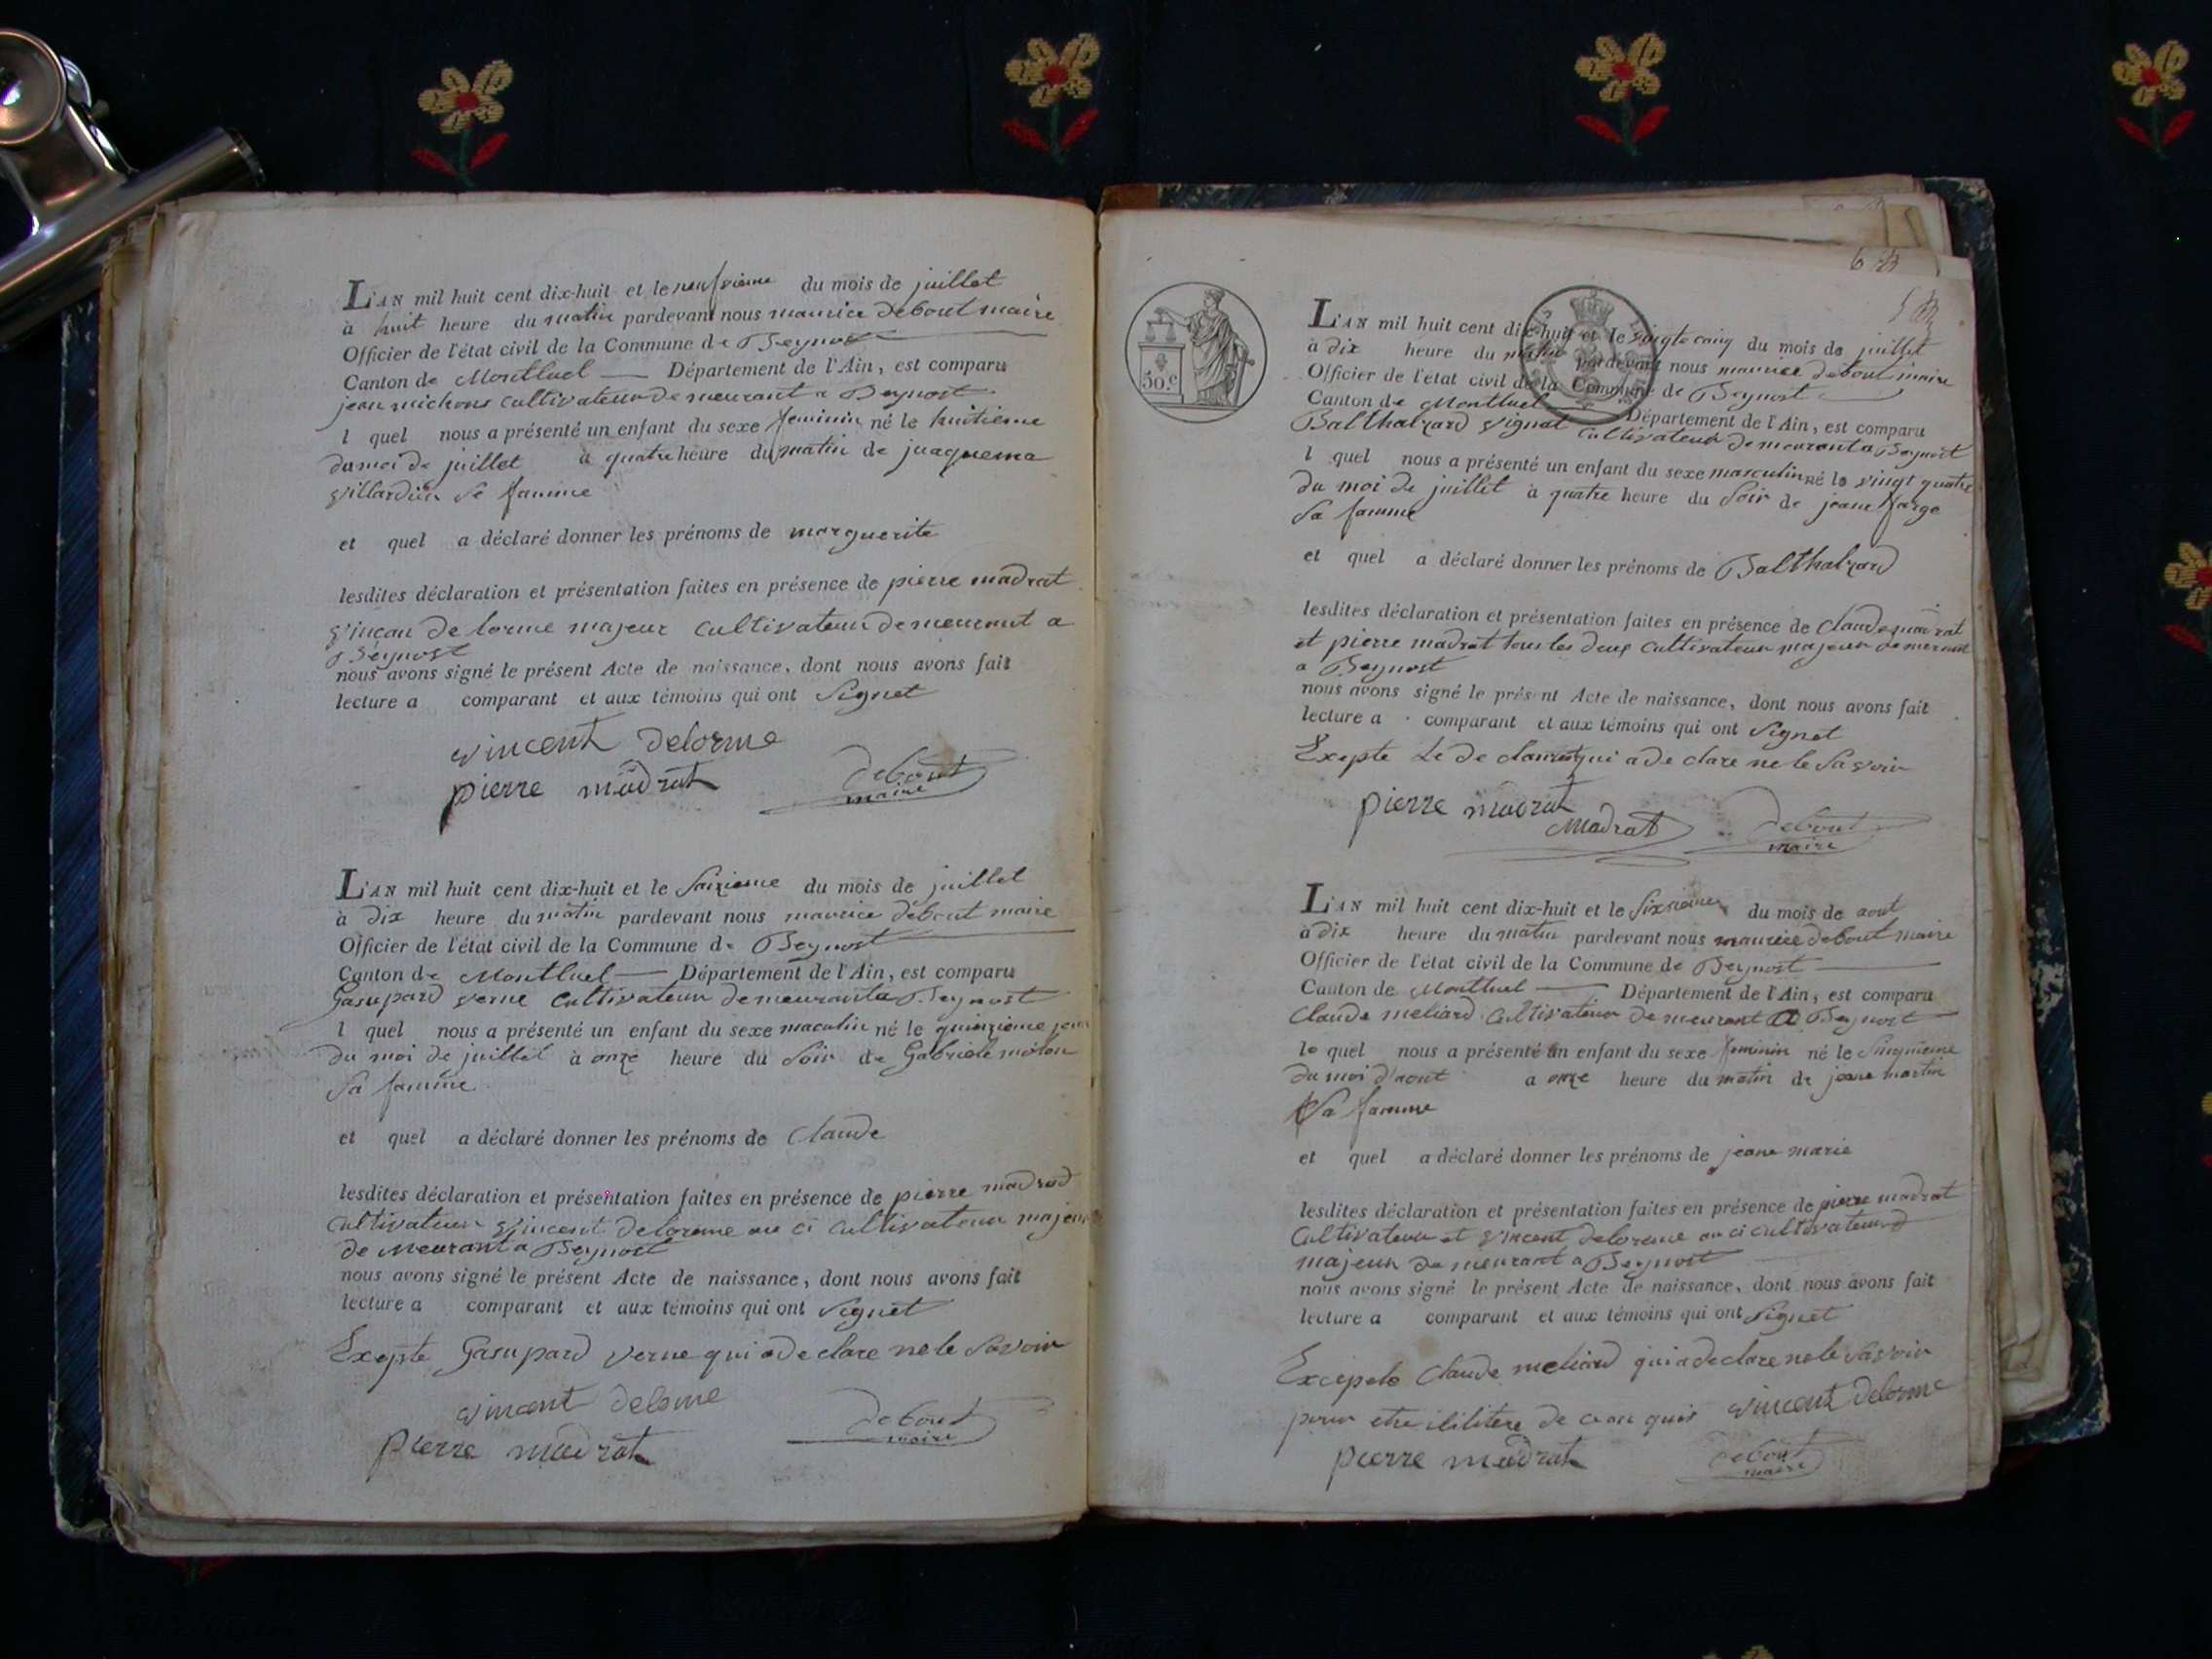 L'AN mil huit cent dix-huit et le neufvieme du mois de juillet
à huit heure du matin pardevant nous maurice debout maire
Officier de l'état civil de la Commune de Beynost
Canton de Montluel Département de l'Ain, est comparu
jean michons cultivateur demeurant a Beynost
l quel nous a présenté un enfant du sexe feminin né le huitieme
du moi de juillet à quatre heure du matin de juaquema
villardier se famme
et quel a déclaré donner les prénoms de marguerite
lesdites déclaration et présentation faites en présence de pierre madrat
vinçan de lorme majeur cultivateur demeurant a
Beynost
nous avons signé le présent Acte de naissance, dont nous avons fait
lecture a comparant et aux témoins qui ont signet
vincent delorme
pierre madrat debout
maire
L'AN mil huit cent dix-huit et le saizieme du mois de juillet
à dix heure du matin pardevant nous maurice debout maire
Officier de l'état civil de la Commune de Beynost
Canton de Montluel Département de l'Ain, est comparu
Gasupard verne cultivateur demeurant a Beynost
l quel nous a présenté un enfant du sexe maculin né le quinzieme jour
du moi de juillet à onze heure du soir de Gabriele molon
sa famme
et quel a déclaré donner les prénoms de Claude
lesdites déclaration et présentation faites en présence de pierre madrad
cultivateur vincent delorme au ci cultivateur majeur
de meurant a Beynost
nous avons signé le présent Acte de naissance, dont nous avons fait
lecture a comparant et aux témoins qui ont signet
Exepte Gasupard verne qui a declare ne le savoir
vincent delorme
pierre madrat debout
maire
50.c
L'AN mil huit cent dix-huit et le vingt cinq du mois de juillet
à dix heure du matin pardevant nous maurice debout maire
Officier de l'état civil de la Commune de Beynost
Canton de Montluel Département de l'Ain, est comparu
Balthalzard vignat cultivateur demeurant a Beynost
l quel nous a présenté un enfant du sexe masculin né le vingt quatre
du moi de juillet à quatre heure du soir de jeane farge
sa famme
et quel a déclaré donner les prénoms de Balthalzard
lesdites déclaration et présentation faites en présence de Claude madrat
et pierre madrat tous les deux cultivateur majeur demeurant
a Beynost
nous avons signé le présent Acte de naissance, dont nous avons fait
lecture a comparant et aux témoins qui ont signet
Exepte Le de clarant qui a de clare ne le savoir
pierre madrat
Madrat debout
maire
L'AN mil huit cent dix-huit et le sixieme du mois de aout
à dix heure du matin pardevant nous maurice debout maire
Officier de l'état civil de la Commune de Beynost
Canton de Montluel Département de l'Ain, est comparu
Claude meliard cultivateur demeurant a Beynost
le quel nous a présenté un enfant du sexe feminin né le sinquieme
du moi d'aout a onze heure du matin de jeane martin
sa famme
et quel a déclaré donner les prénoms de jeane marie
lesdites déclaration et présentation faites en présence de pierre madrat
cultivateur et vincent delorme au ci cultivateur
majeur demeurant a Beynost
nous avons signé le présent Acte de naissance, dont nous avons fait
lecture a comparant et aux témoins qui ont signet
Claude meliard qui a declare ne le savoir
pour etre ililitere de ce vincent delorme
pierre madrat debout
maire